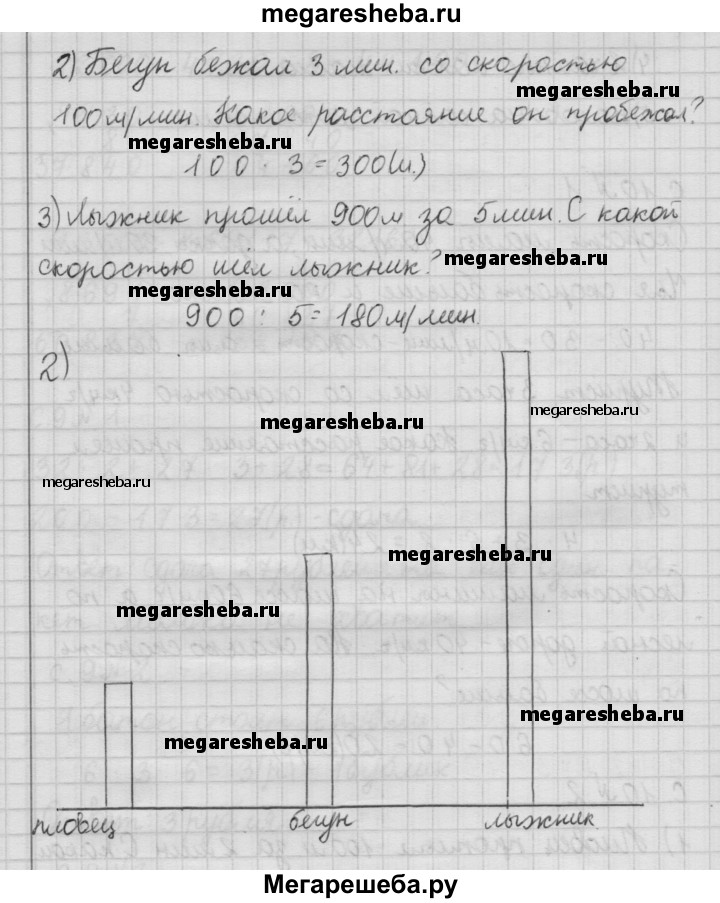 megaresheba.ru
2) Бегун бежал 3 мин. со скоростью
megaresheba.ru
100 м/мин. Какое расстояние он пробежал?
megaresheba.ru
100 · 3 = 300(м.)
3) Лыжник прошёл 900м за 5 мин. С какой
скоростью шёл лыжник?
megaresheba.ru
megaresheba.ru
900 : 5 = 180 м/мин.
2)
megaresheba.ru
megaresheba.ru
megaresheba.ru
megaresheba.ru
megaresheba.ru
megaresheba.ru
megaresheba.ru
пловец бегун лыжник
Мегарешеба.ру